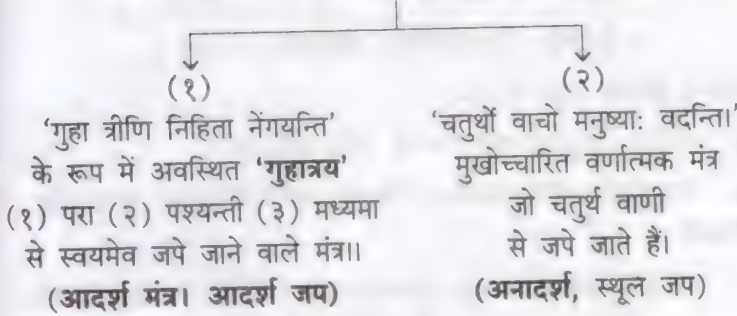 (१)
‘गुहा त्रीणि निहिता नेंगयन्ति’
के रूप में अवस्थित ‘गुहात्रय’
(१) परा (२) पश्यन्ती (३) मध्यमा
से स्वयमेव जपे जाने वाले मंत्र।।
(आदर्श मंत्र। आदर्श जप)
(२)
‘चतुर्थो वाचो मनुष्याः वदन्ति।’
मुखोच्चारित वर्णात्मक मंत्र
जो चतुर्थ वाणी
से जपे जाते हैं।
(अनादर्श, स्थूल जप)